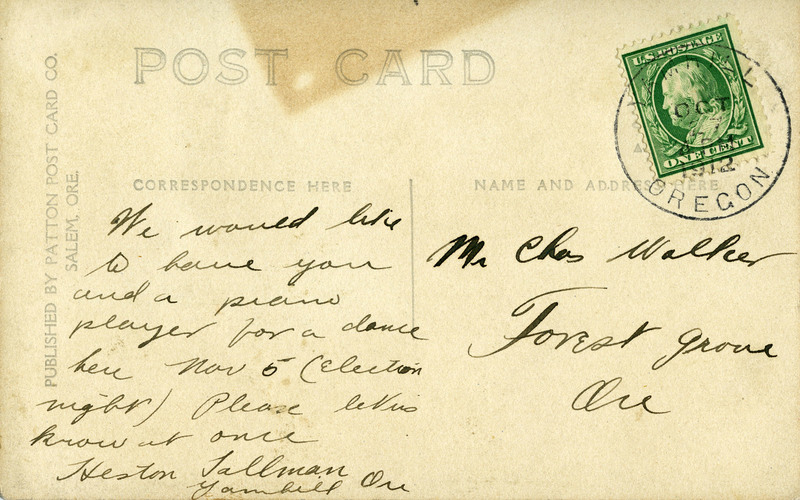 POST CARD
PUBLISHED BY PATTON POST CARD CO.
SALEM, ORE.
CORRESPONDENCE HERE
NAME AND ADDRESS HERE
U.S. POSTAGE
ONE CENT
OCT
1912
OREGON
We would like
to have you
and a piano
player for a dance
here Nov 5 (Election
night) Please let us
know at once
Heston Tallman
Yamhill Ore
Mr Chas Walker
Forest Grove
Ore